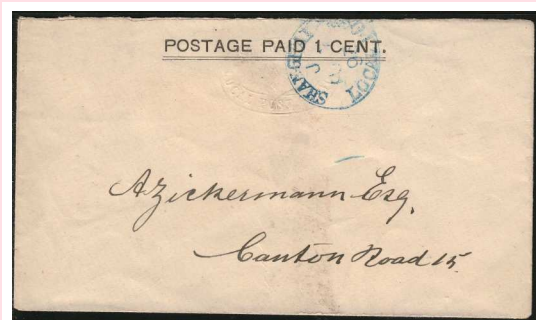 POSTAGE PAID 1 CENT.
SHANGHAI
LOCAL
A Zickermann Esq.
Canton Road 15.